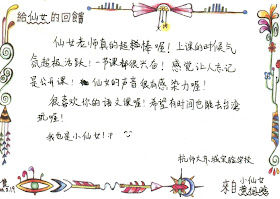 給仙女的回饋
仙女老师真的超级棒喔！上课的时候气
氛超极活跃！一节课都很兴奋！感觉让人忘记
是公开课！仙女的声音很有感染力喔！
很喜欢你的语文课喔！希望有时间也能去台湾
玩喔！
我也是小仙女！
来自小仙女